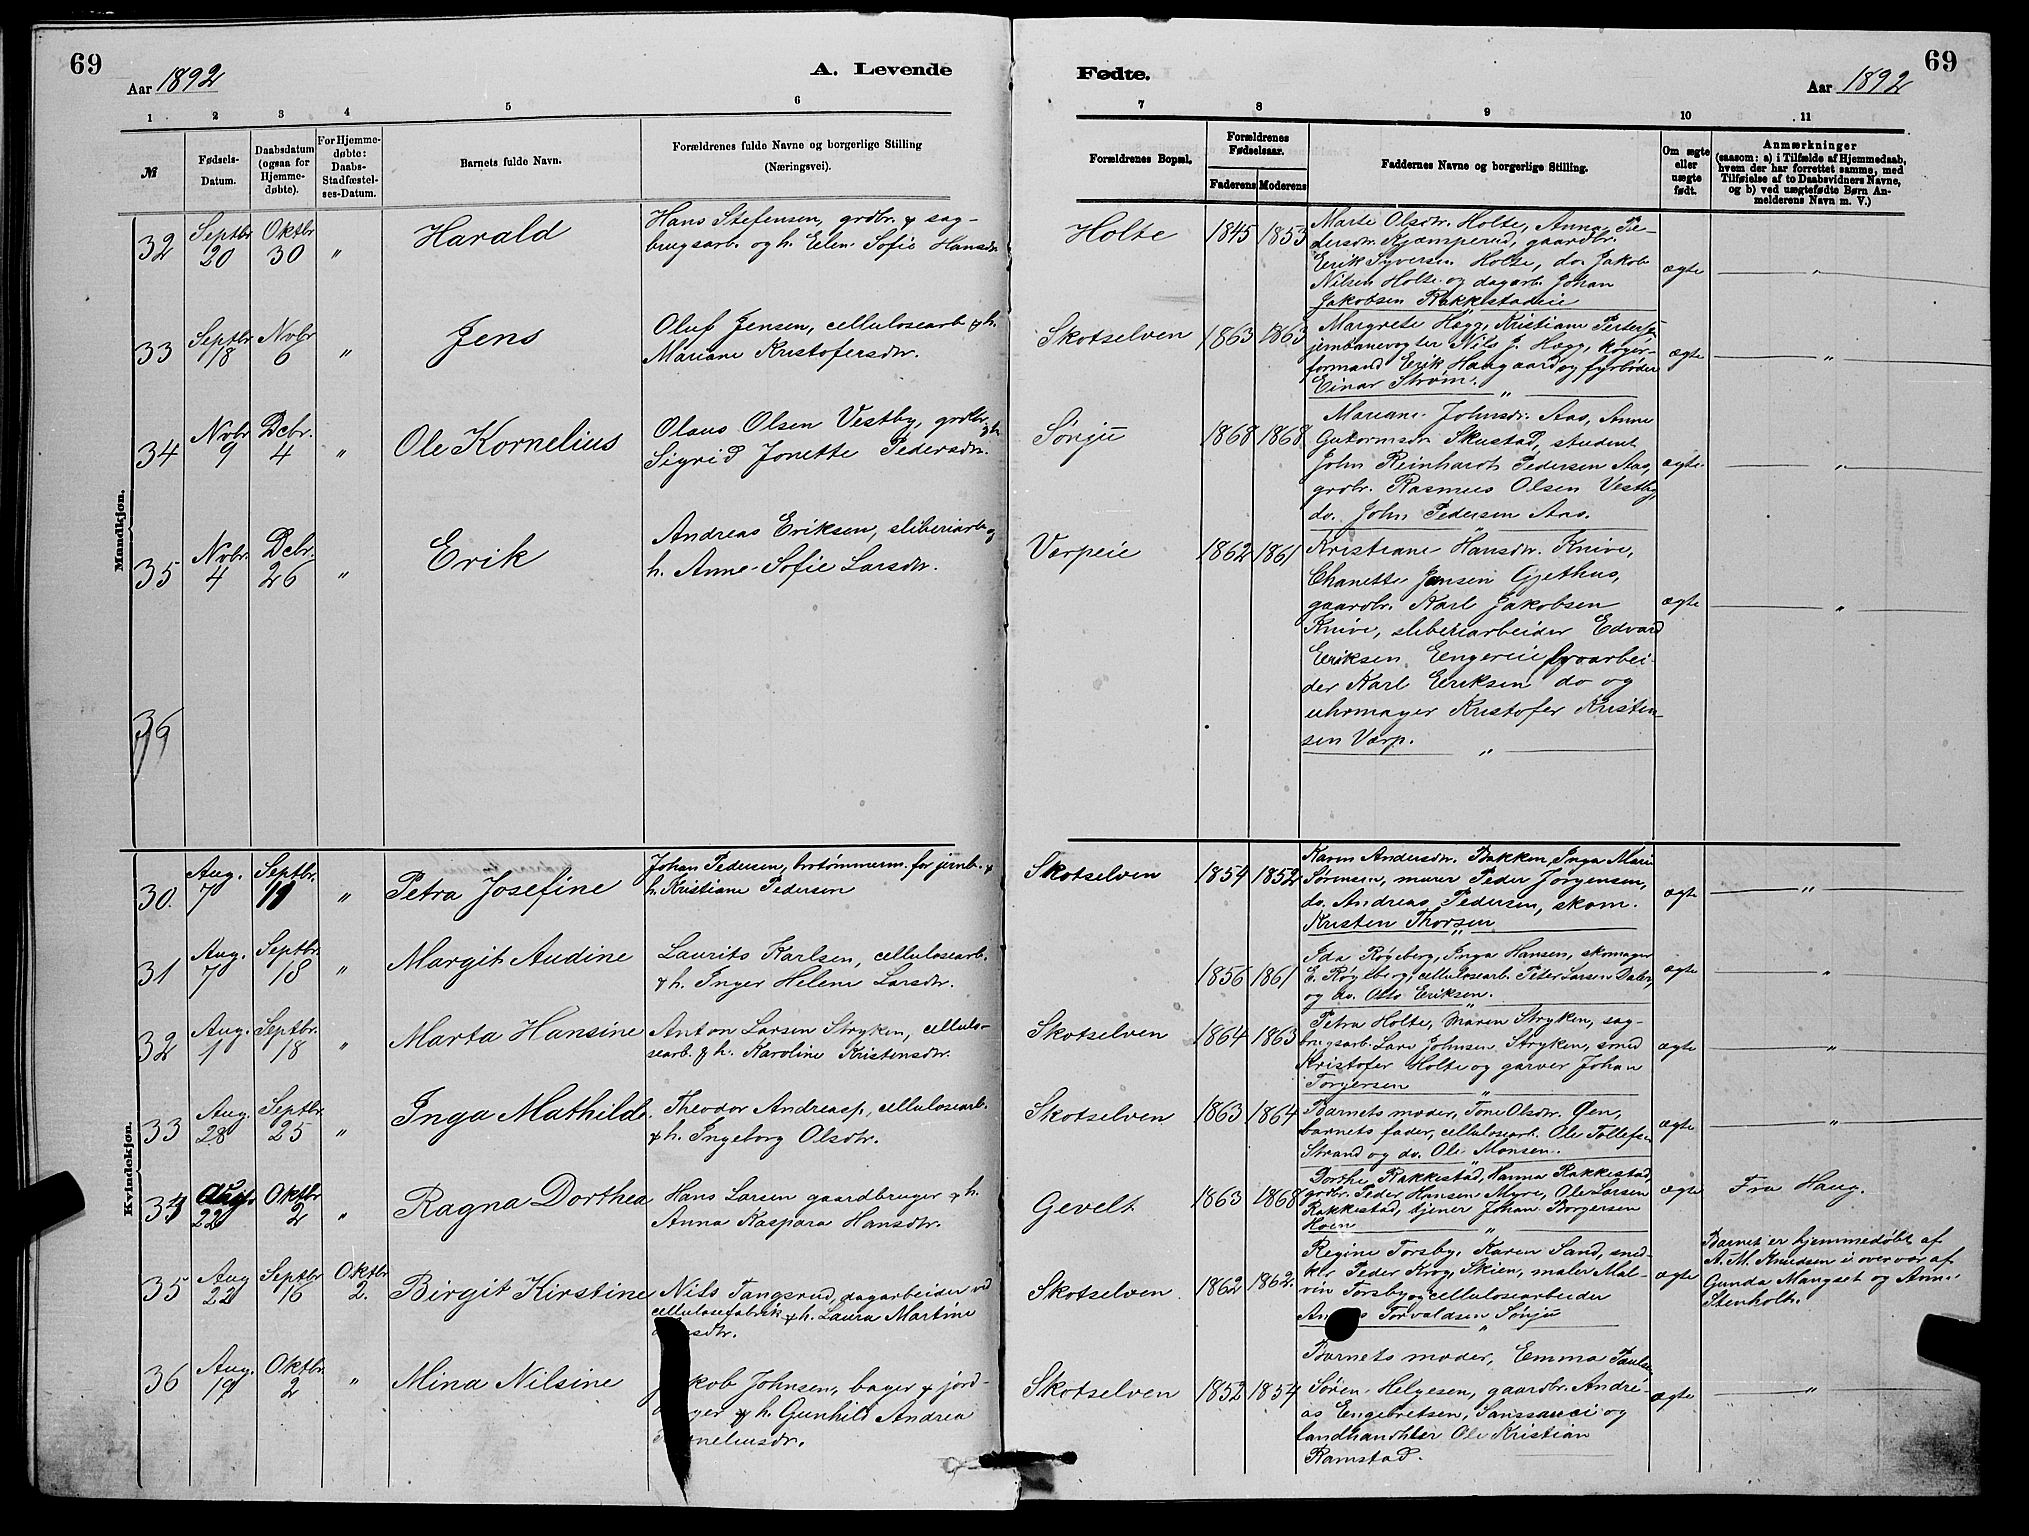 69
Aar 1892
A. Levende
1 2 3 4 5 6
№ Fødsels-Datum. Daabsdatum (ogsaa for Hjemmedøbte). For Hjemmedøbte: Daabs-Stadfæstelses-Datum. Barnets fulde Navn. Forældrenes fulde Navne og borgerlige Stilling (Næringsvei).
Mandkjøn.
32 Septbr 20 Oktbr 30 " Harald
Hans Stefensen, grdbr. & sag-
brugsarb. og h. Elen Sofie Hansdr.
33 Septbr 18 Novbr 6 " Jens
Oluf Jensen, cellulosearb & h.
Mariane Kristofersdtr.
34 Novbr 9 Dcbr. 4 " Ole Kornelius
Olaus Olsen Vestby, grdbr. & h.
Sigrid Jonette Pedersdtr.
35 Novbr. 4 Dcbr. 26 " Erik
Andreas Eriksen, sliberiarb. og
h. Anne Sofie Larsdtr.
36
Kvindekjøn.
30. Aug. 7 Septbr. 11 " Petra Josefine
Johan Pedersen, brotømmerm. for jernb. &
h. Kristiane Pedersen
31 Aug. 7 Septbr. 18 " Margit Audine
Laurits Karlsen, cellulosearb.
& h. Inger Helene Larsdtr.
32 Aug. 1 Septbr. 18 " Marta Hansine
Anton Larsen Stryken, cellulo-
searb. & h. Karoline Kristensdtr.
33 Aug. 28 Septbr 25 " Inga Mathilde
Theodor Andreass., cellulosearb.
& h. Ingeborg Olsdtr.
34 Aug. 22 Oktbr. 2 " Ragna Dorthea
Hans Larsen gaardbruger & h.
Anna Kaspara Hansdtr.
35 Aug 22 Septbr 16 Oktbr. 2. Birgit Kirstine
Nils Tangsrud, dagarbeider ved
cellulosefabrik & h. Laura Martine
36 Aug. 19 Oktbr. 2 " Mina Nilsine
Johnsen, bager & jord-
& h. Gunhild Andrea
69
Fødte.
Aar 1892
7 8 9 10 11
Forældrenes Bopæl. Forældrenes Fødselsaar. Faderens Moderens Faddernes Navne og borgerlige Stilling. Om ægte eller uægte født. Anmærkninger
(saasom: a) i Tilfælde af Hjemmedaab,
hvem der har forrettet samme, med
Tilføielse af to Daabsvidners Navne,
og b) ved uægtefødte Børn An-
melderens Navn m. V.)
Holte 1845 1853
Marte Olsdtr. Holte, Anna Pe-
dersdtr. Kjæmperud, gaardbr.
Erik Syversen Holte, do. Jakob
Nilsen Holte og dagarb. Johan
Jakobsen Rakkestadeie
ægte "
Skotselven 1863 1863
Margrete Hægg, Kristiane
jernbanevogter Nils J. Hægg, koger-
formand Erik Haugaard og fyrbøder
Einar Strøm.
ægte "
Sønju 1868 1868
Mariane Johnsdr. Aas, Anne
Gutormsdr Skustad, student
John Reinhardt Pedersen Aas,
grdbr. Rasmus Olsen Vestby,
do. John Pedersen Aas.
ægte "
Værpeie 1862 1861
Kristiane Hansdtr. Knive,
Chanette Jensen Gjethus,
gaardbr. Karl Jakobsen
Knive, sliberiarbeider Edvard
Eriksen Engereie
der Karl Eriksen do og
uhrmager Kristofer Kristen-
sen Værp.
ægte "
Skotselven 1854 1852
Karen Andersdtr. Bakken, Inga Marie
Sørensen, murer Peder Jørgensen,
do. Andreas Pedersen, skom.
Kristen Thorsen
ægte "
1856 1861
Ida Røgeberg, Inga Hansen, skomager
E. Røgeberg, cellulosearb. Peter Larsen Dalen
og do. Otto Eriksen.
ægte "
Skotselven 1864 1863
Petra Holte, Maren Stryken, sag-
brugsarb. Lars Johnsen Stryken, smed
Kristofer Holte og garver Johan
Torgersen
ægte "
Skotselven 1863 1864
Barnets moder, Tone Olsdtr. Øen,
barnets fader, cellulosearb. Ole Tollefsen
Strand og do. Ole Monsen.
ægte "
Gevelt 1863 1868
Dorthe Rakkestad, Hanna Rakkestad,
grdbr. Peder Hansen Myre, Ole Larsen
Rakkestad, tjener Johan Borgersen
Hoen
ægte Fra Haug.
Skotselven. 1862 1862.
Regine Torsby, Karen Sand, sned-
ker Peder Krog, Skien, maler Mal-
vin Torsby og cellulosearbeider
Torvaldsen Sønju
ægte
Barnet er hjemmedøbt af
A. M. Knudsen i overvær af
Gunda Mangset og Anne
Stenholt.
Skotselven 1852 1854
Barnets moder, Emma Paulsen
Søren Helgesen, gaardbr. Andre-
as Engebretsen, Sanssouci og
landhandler Ole Kristian
Ramstad.
ægte "